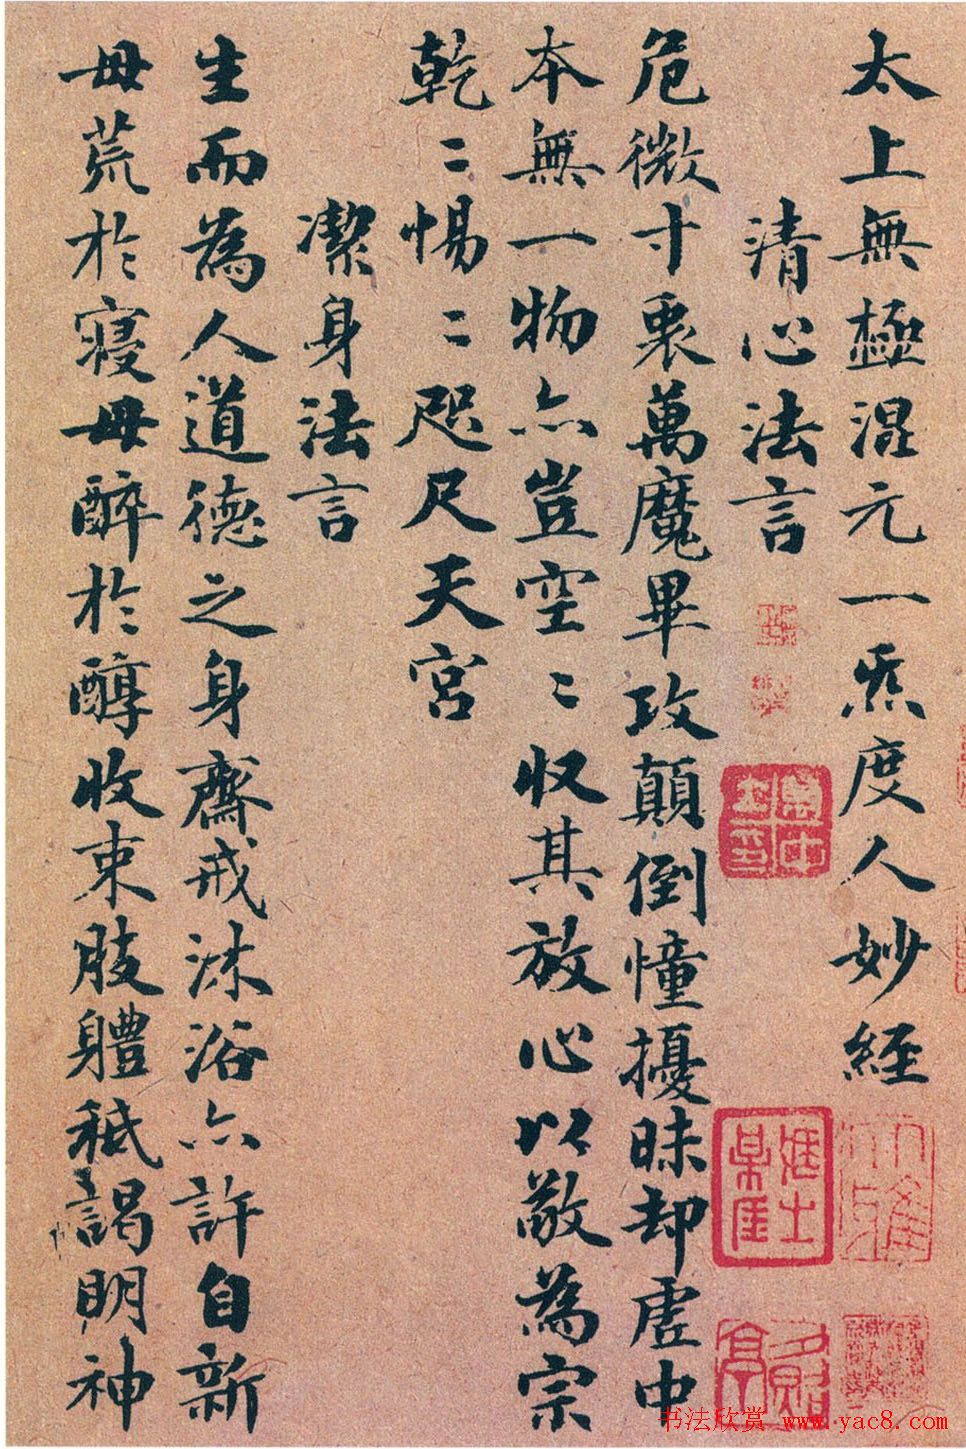 太上無極混元一炁度人妙經
清心法言
危微寸衷萬魔畢攻顛倒憧擾昧却虛中
本無一物亦豈空〻収其放心以敬為宗
乾〻惕〻咫尺天宮
潔身法言
生而為人道德之身齋戒沐浴亦許自新
毋荒於寢毋醉於醇收束肢體祗謁明神
书法欣赏 www.yac8.com